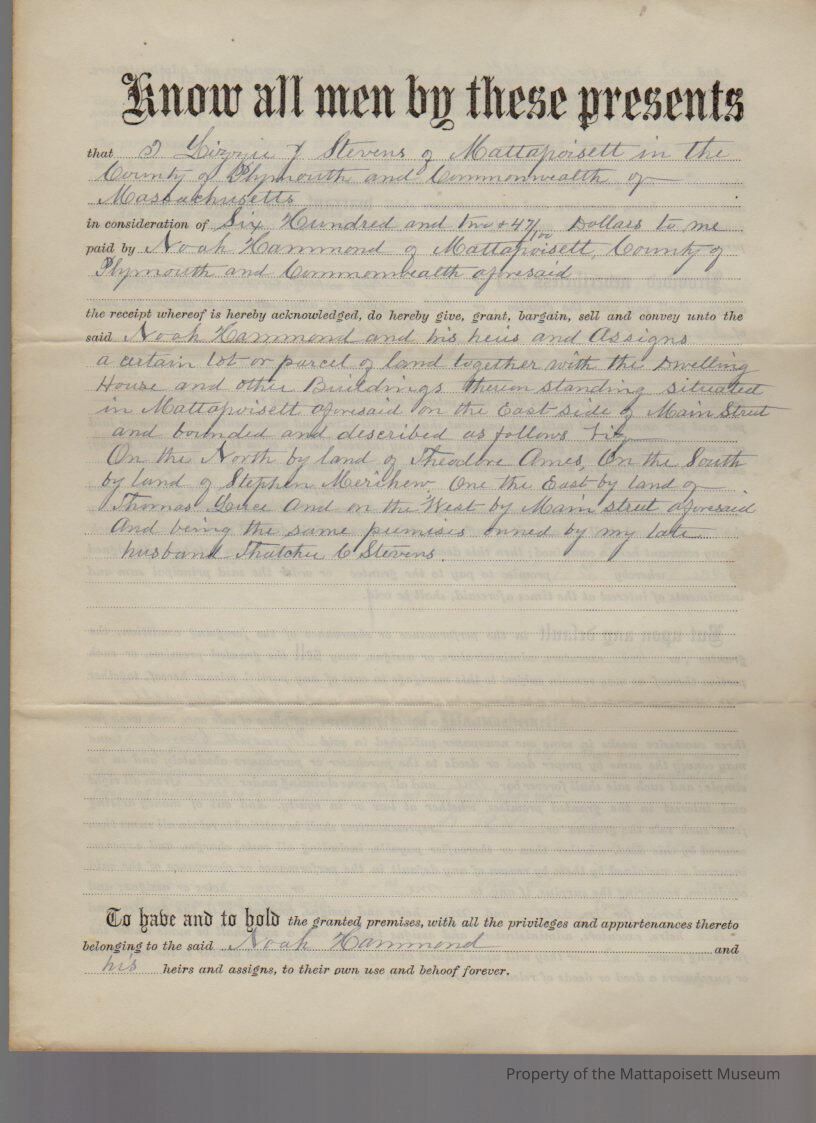 Know all men by these presents
that I Lizzie F Stevens of Mattapoisett in the
County of Plymouth and Commonwealth of
Massachusetts
in consideration of Six Hundred and two + 47/100 Dollars to me
paid by Noah Hammond of Mattapoisett, County of
Plymouth and Commonwealth aforesaid
the receipt whereof is hereby acknowledged, do hereby give, grant, bargain, sell and convey unto the
said Noah Hammond and his heirs and Assigns
a certain lot or parcel of land together with the Dwelling
House and other Buildings thereon standing situated
in Mattapoisett aforesaid on the East side of Main Street
and bounded and described as follows Viz
On the North by land of Theodore Ames, On the South
by land of Stephen Merihew, One the East by land of
Thomas Luce And on the West by Main street aforesaid
And being the same premises owned by my late
husband Thatcher C Stevens.
To have and to hold the granted premises, with all the privileges and appurtenances thereto
belonging to the said Noah Hammond and
his heirs and assigns, to their own use and behoof forever.
Property of the Mattapoisett Museum